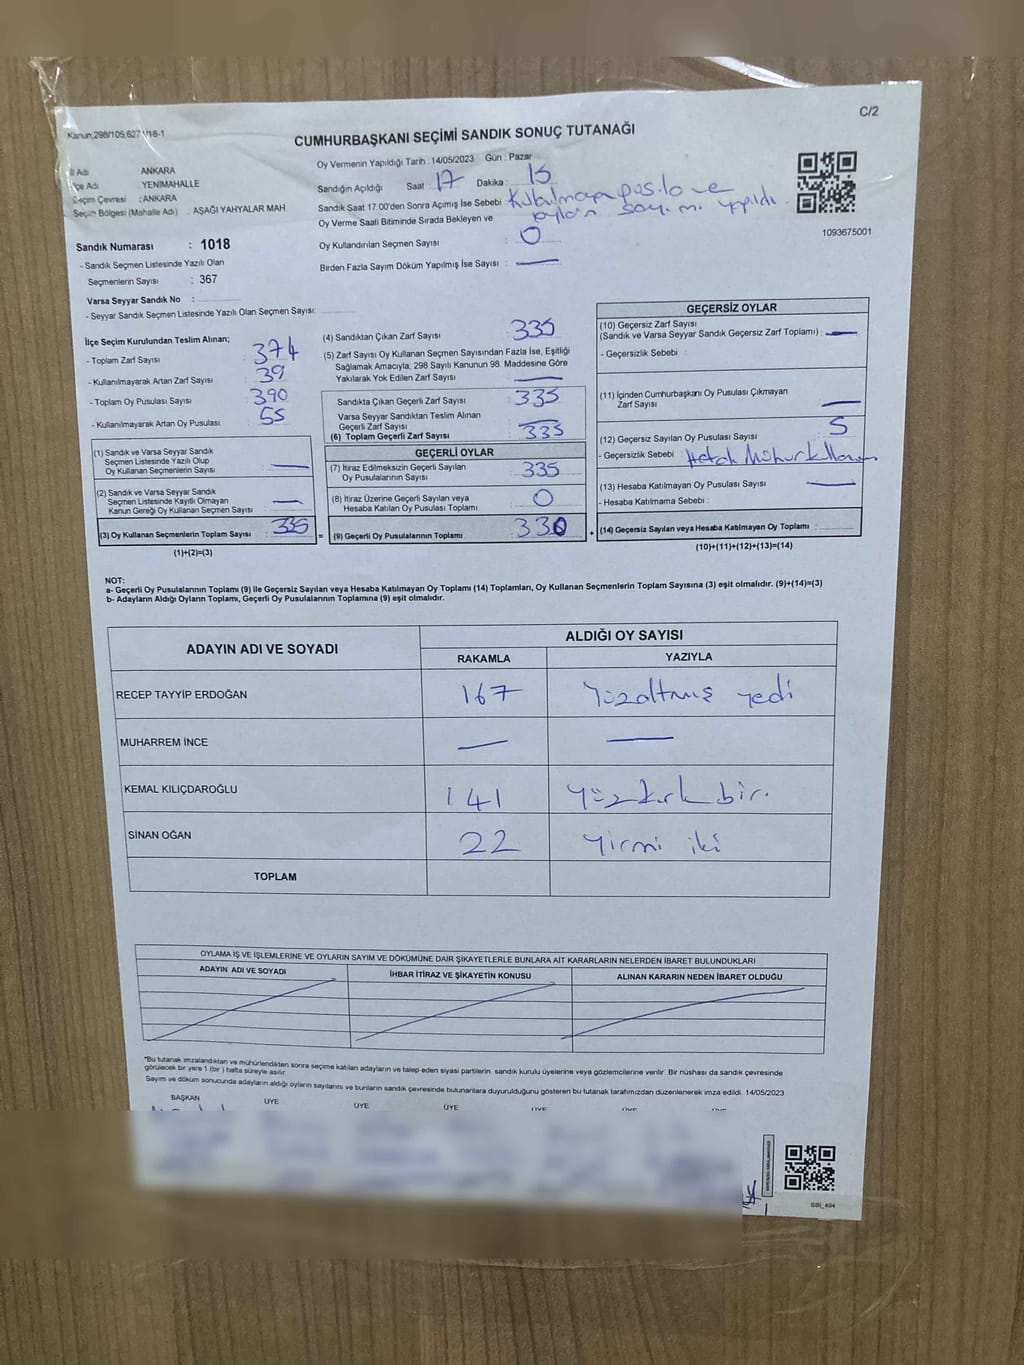 C/2
Kanun,298/105,627
18-1
CUMHURBAŞKANI SEÇİMİ SANDIK SONUÇ TUTANAĞI
İl Adı ANKARA
İlçe Adı YENİMAHALLE
Seçim Çevresi : ANKARA
Seçim Bölgesi (Mahalle Adı) : AŞAĞI YAHYALAR MAH.
Sandık Numarası : 1018
- Sandık Seçmen Listesinde Yazılı Olan
Seçmenlerin Sayısı : 367
Varsa Seyyar Sandık No :
- Seyyar Sandık Seçmen Listesinde Yazılı Olan Seçmen Sayısı:
Oy Vermenin Yapıldığı Tarih : 14/05/2023 Gün : Pazar
Sandığın Açıldığı Saat : 17 Dakika : 15
Sandık Saat 17:00'den Sonra Açımış İse Sebebi ve
sayımı yapıldı.
Oy Verme Saati Bitiminde Sırada Bekleyen ve
Oy Kullandırılan Seçmen Sayısı : 0
Birden Fazla Sayım Döküm Yapılmış İse Sayısı : —
1093675001
İlçe Seçim Kurulundan Teslim Alınan;
- Toplam Zarf Sayısı : 374
- Kullanılmayarak Artan Zarf Sayısı : 39
- Toplam Oy Pusulası Sayısı : 390
- Kullanılmayarak Artan Oy Pusulası : 55
(1) Sandık ve Varsa Seyyar Sandık
Seçmen Listesinde Yazılı Olup
Oy Kullanan Seçmenlerin Sayısı : —
(2) Sandık ve Varsa Seyyar Sandık
Seçmen Listesinde Kayıtlı Olmayan
Kanun Gereği Oy Kullanan Seçmen Sayısı : —
(3) Oy Kullanan Seçmenlerin Toplam Sayısı : 335
(1)+(2)=(3)
=
(4) Sandıktan Çıkan Zarf Sayısı : 335
(5) Zarf Sayısı Oy Kullanan Seçmen Sayısından Fazla İse, Eşitliği
Sağlamak Amacıyla, 298 Sayılı Kanunun 98. Maddesine Göre
Yakılarak Yok Edilen Zarf Sayısı : —
Sandıkta Çıkan Geçerli Zarf Sayısı : 335
Varsa Seyyar Sandıktan Teslim Alınan
Geçerli Zarf Sayısı : —
(6) Toplam Geçerli Zarf Sayısı : 335
GEÇERLİ OYLAR
(7) İtiraz Edilmeksizin Geçerli Sayılan
Oy Pusulalarının Sayısı : 335
(8) İtiraz Üzerine Geçerli Sayılan veya
Hesaba Katılan Oy Pusulası Toplamı : 0
(9) Geçerli Oy Pusulalarının Toplamı : 330
+
GEÇERSİZ OYLAR
(10) Geçersiz Zarf Sayısı
(Sandık ve Varsa Seyyar Sandık Geçersiz Zarf Toplamı) : —
- Geçersizlik Sebebi :
(11) İçinden Cumhurbaşkanı Oy Pusulası Çıkmayan
Zarf Sayısı : —
(12) Geçersiz Sayılan Oy Pusulası Sayısı : 5
- Geçersizlik Sebebi :
(13) Hesaba Katılmayan Oy Pusulası Sayısı : —
- Hesaba Katılmama Sebebi :
(14) Geçersiz Sayılan veya Hesaba Katılmayan Oy Toplamı :
(10)+(11)+(12)+(13)=(14)
NOT:
a- Geçerli Oy Pusulalarının Toplamı (9) ile Geçersiz Sayılan veya Hesaba Katılmayan Oy Toplamı (14) Toplamları, Oy Kullanan Seçmenlerin Toplam Sayısına (3) eşit olmalıdır. (9)+(14)=(3)
b- Adayların Aldığı Oyların Toplamı, Geçerli Oy Pusulalarının Toplamına (9) eşit olmalıdır.
ADAYIN ADI VE SOYADI ALDIĞI OY SAYISI
RAKAMLA YAZIYLA
RECEP TAYYİP ERDOĞAN 167 Yüzaltmış yedi
MUHARREM İNCE — —
KEMAL KILIÇDAROĞLU 141 Yüzkırk bir.
SİNAN OĞAN 22 Yirmi iki
TOPLAM
OYLAMA İŞ VE İŞLEMLERİNE VE OYLARIN SAYIM VE DÖKÜMÜNE DAİR ŞİKAYETLERLE BUNLARA AİT KARARLARIN NELERDEN İBARET BULUNDUKLARI
ADAYIN ADI VE SOYADI İHBAR İTİRAZ VE ŞİKAYETİN KONUSU ALINAN KARARIN NEDEN İBARET OLDUĞU
*Bu tutanak imzalandıktan ve mühürlendikten sonra seçime katılan adayların ve talep eden siyasi partilerin sandık kurulu üyelerine veya gözlemcilerine verilir. Bir nüshası da sandık çevresinde
görülecek bir yere 1 (bir) hafta süreyle asılır.
Sayım ve döküm sonucunda adayların aldığı oyların sayılarını ve bunların sandık çevresinde bulunanlara duyurulduğunu gösteren bu tutanak tarafımızdan düzenlenerek imza edildi. 14/05/2023
BAŞKAN ÜYE ÜYE ÜYE ÜYE ÜYE ÜYE
SSI_404